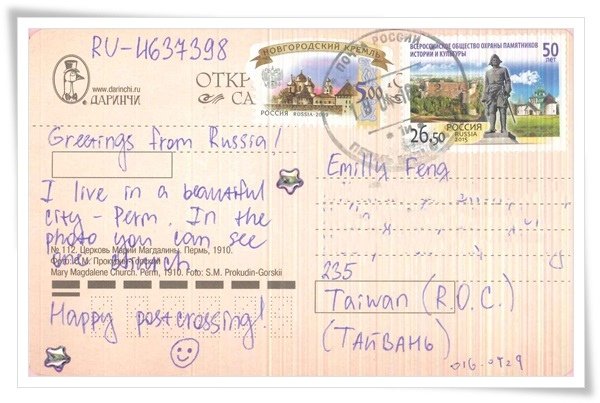 RU-4637398
НОВГОРОДСКИЙ КРЕМЛЬ
5.00
РОССИЯ RUSSIA-2009
ВСЕРОССИЙСКОЕ ОБЩЕСТВО ОХРАНЫ ПАМЯТНИКОВ
ИСТОРИИ И КУЛЬТУРЫ
50
ЛЕТ
26.50
РОССИЯ
RUSSIA
2015
РОССИИ
www.darinchi.ru
ДАРИНЧИ
Greetings from Russia!
I live in a beautiful
city - Perm. In the
photo you can see
the church
№ 112. Церковь Марии Магдалины. Пермь, 1910.
Фото: С.М. Прокудин-Горский
Mary Magdalene Church. Perm, 1910. Foto: S.M. Prokudin-Gorskii
Happy postcrossing!
Emilly Feng
235
Taiwan (R.O.C.)
(ТАЙВАНЬ)
016.0429